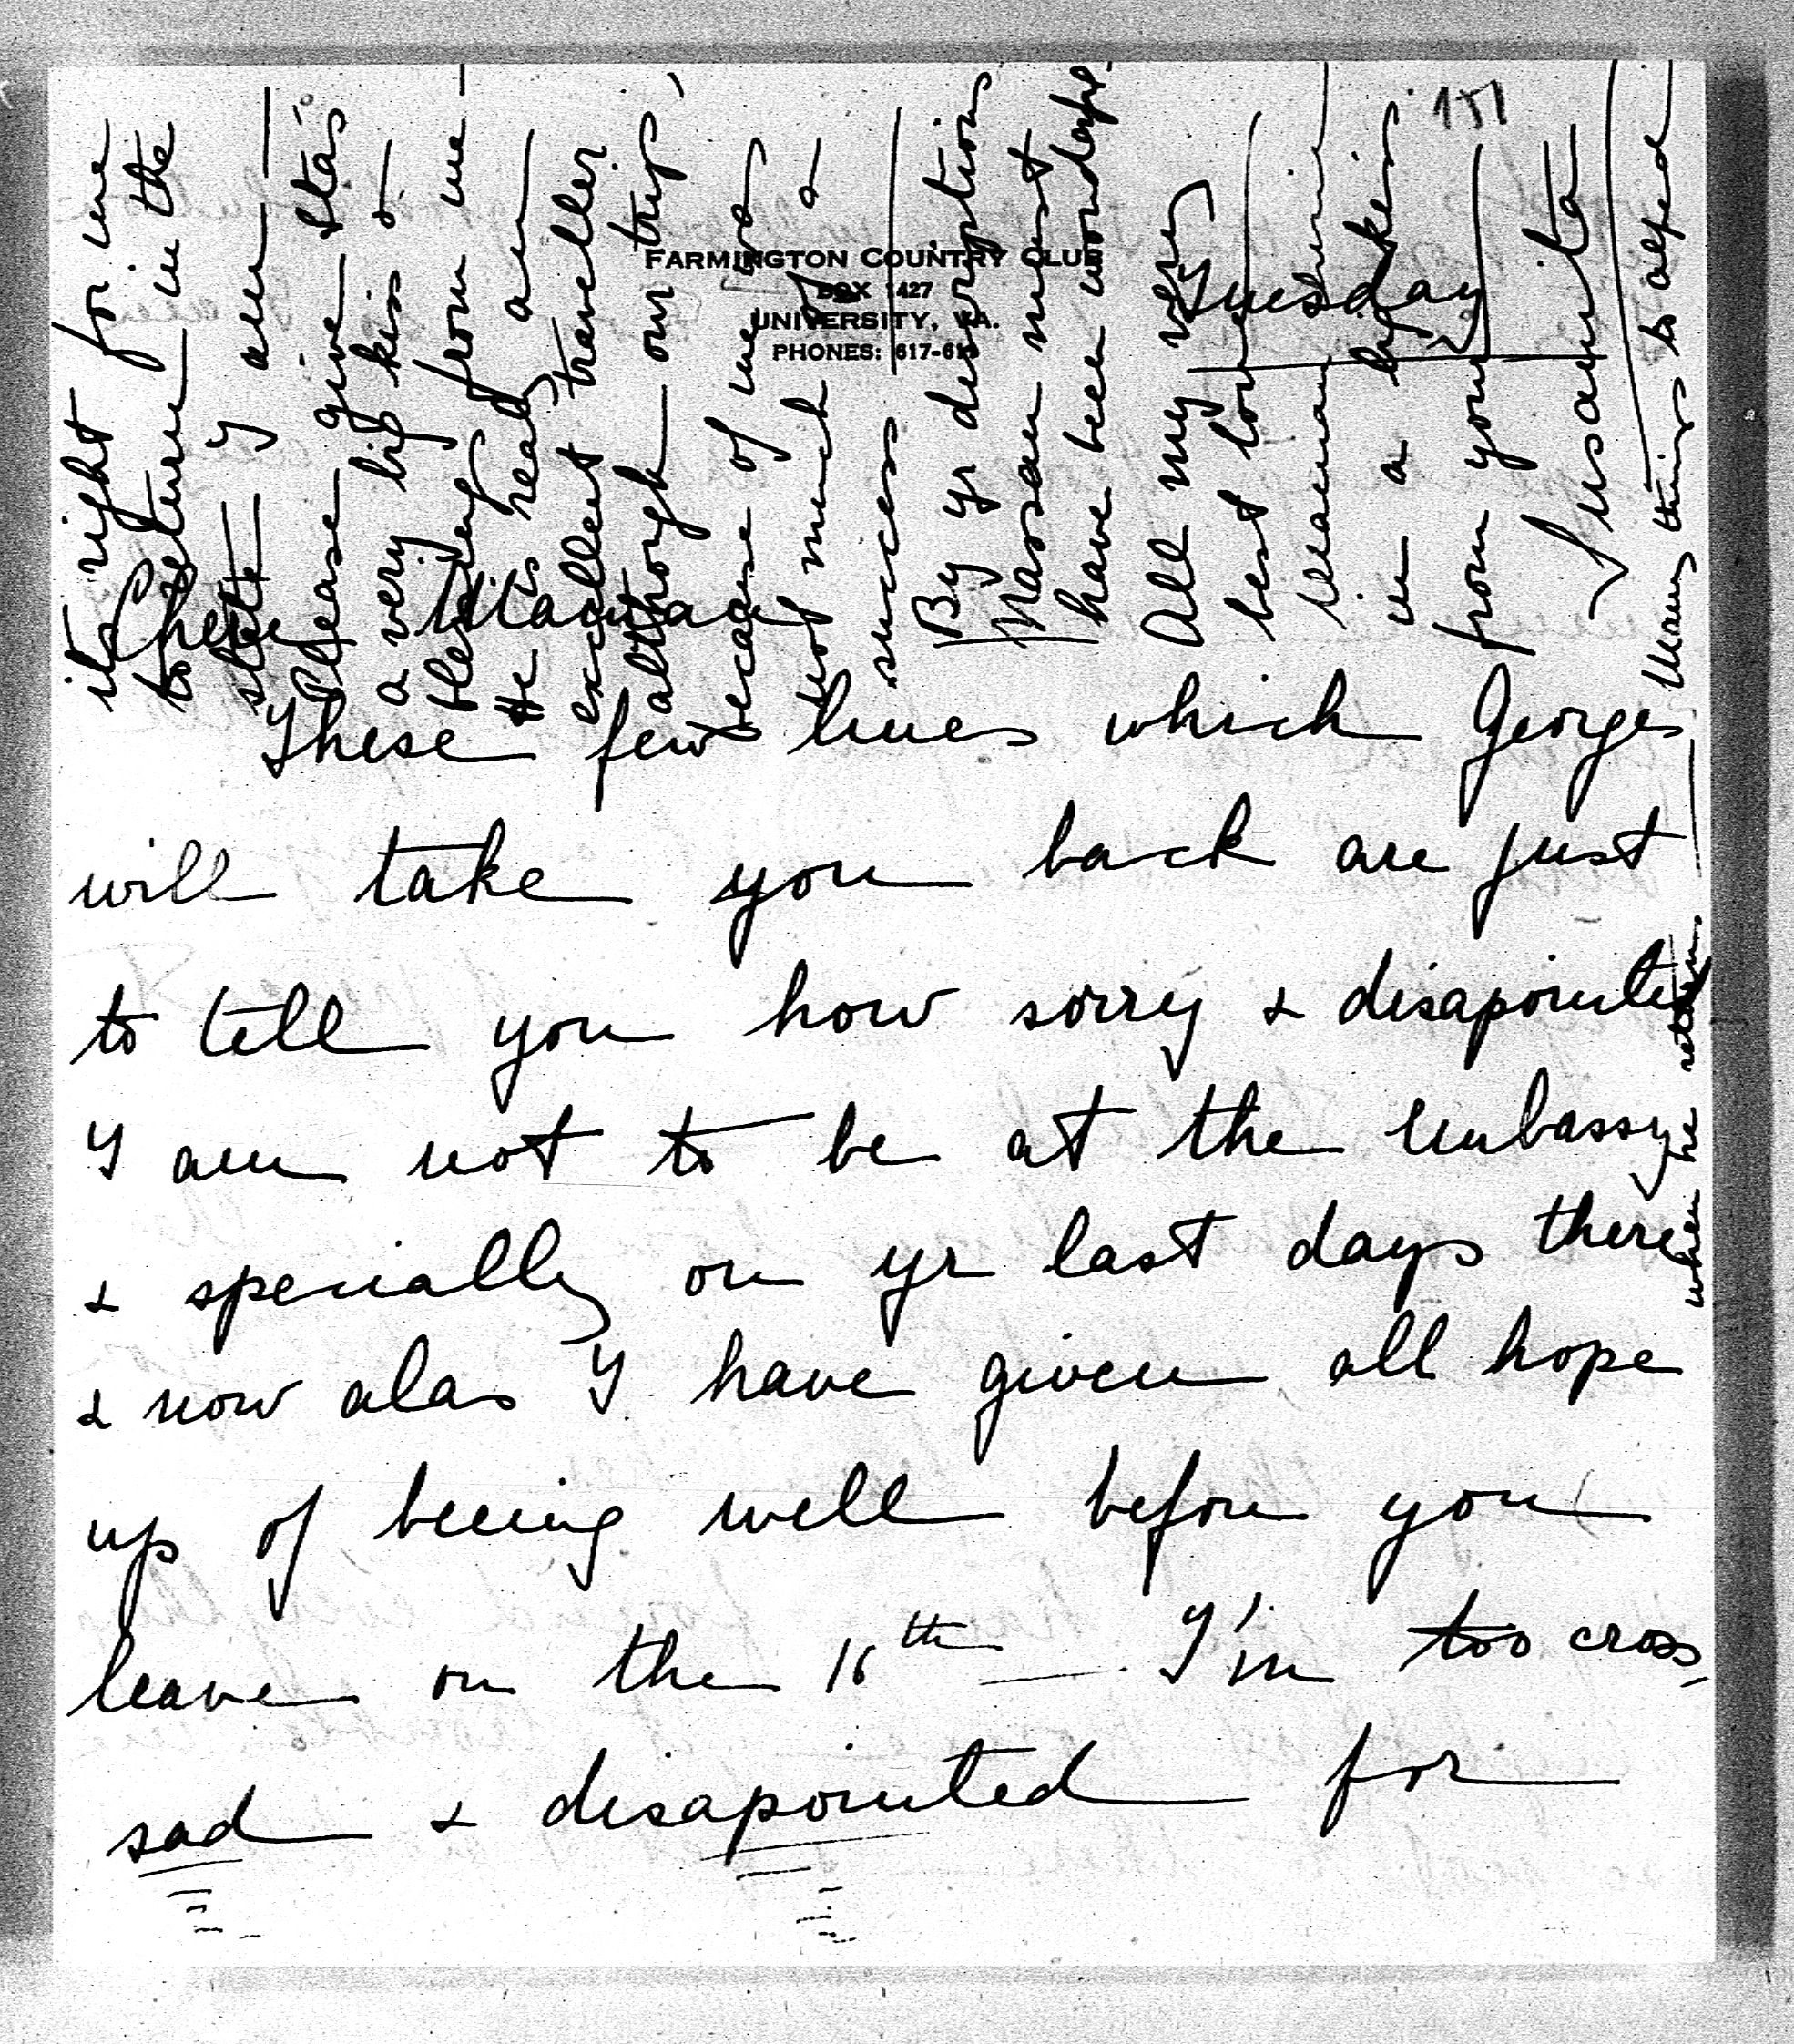 FARMINGTON COUNTRY CLUB
BOX 1427
UNIVERSITY, VA.
PHONES: 617-61
Tuesday
Chère Maman
These few lines which George
will take you back are just
to tell you how sorry & disapointed
I am not to be at the Embassy
& specially on yr last days there
& now alas I have given all hope
up of beeing well before you
leave on the 16th I'm too cross,
sad & disapointed for
it right for me
to return in the
state I am
Please give Stas
a very big kiss &
from me
He is really an
excellent traveller
although our trip,
because of me was
not much of a
success
By yr description
Massau must
have been wonderful
All my very
best love
Maman
in a big kiss
from your
Susanita
Many things to alfred
when he returns.